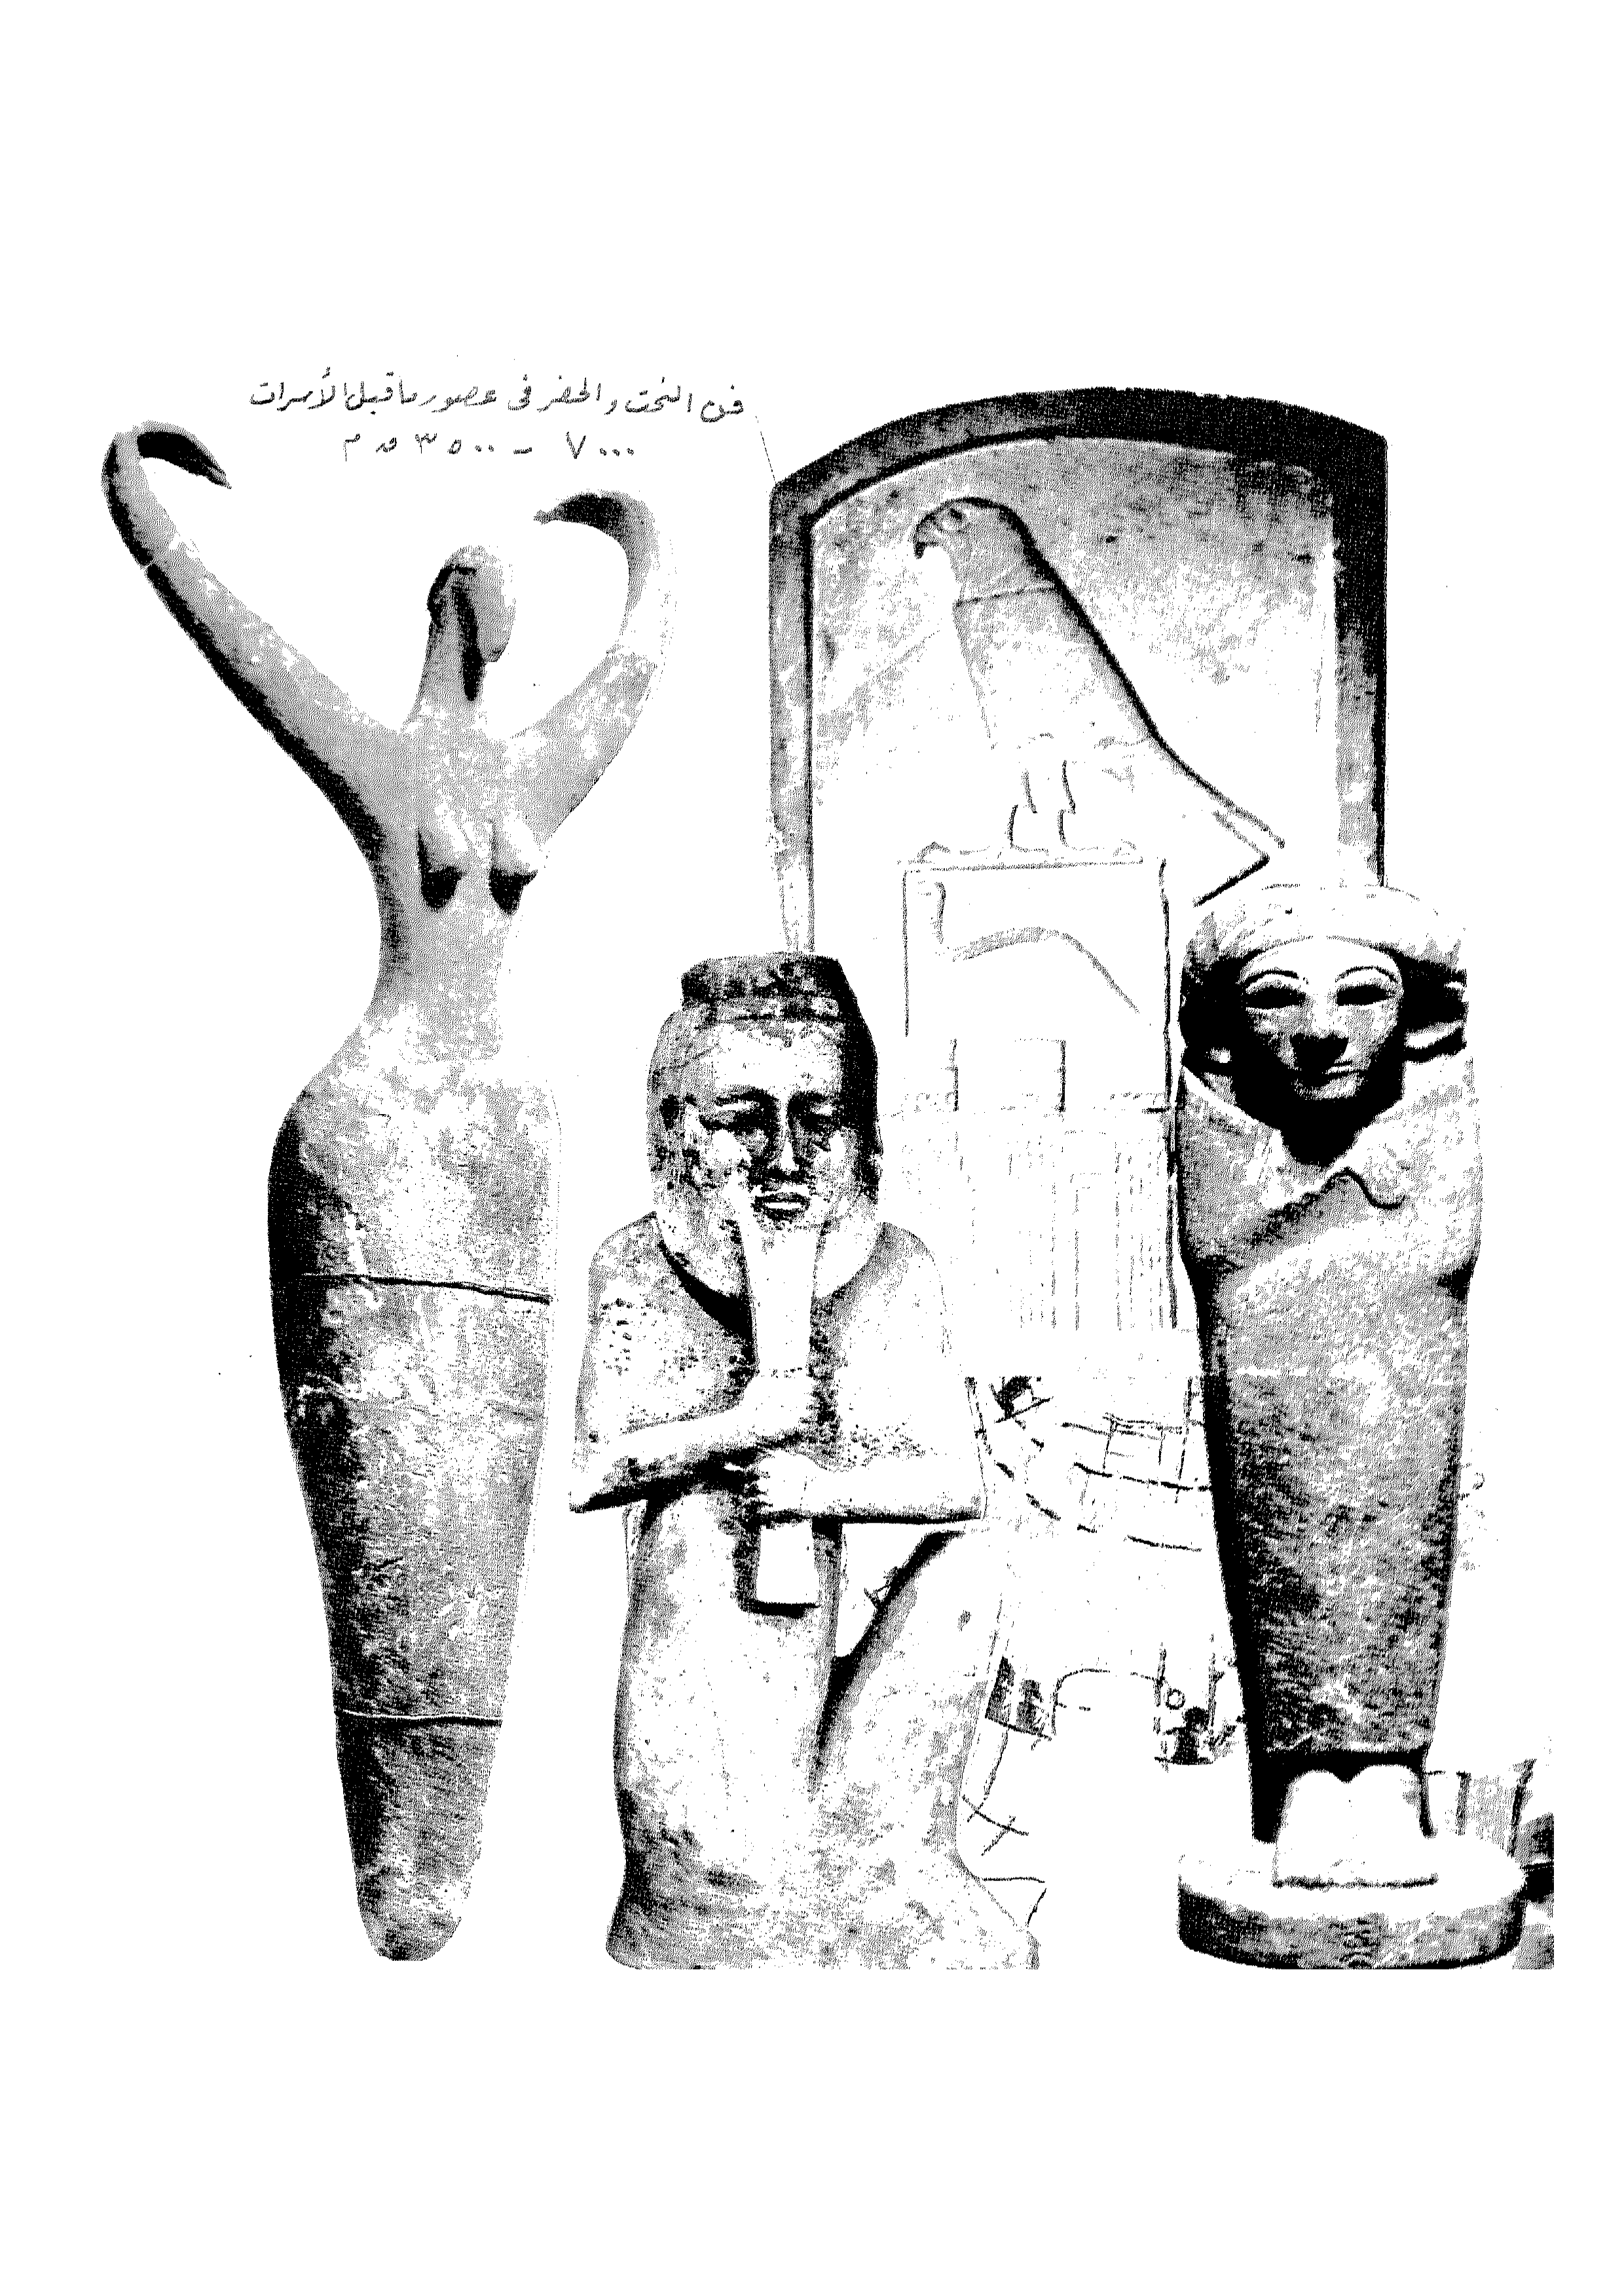 فن النحت والحفر فى عصور ماقبل الأسرات
٧٠٠٠ – ٣٥٠٠ ق م